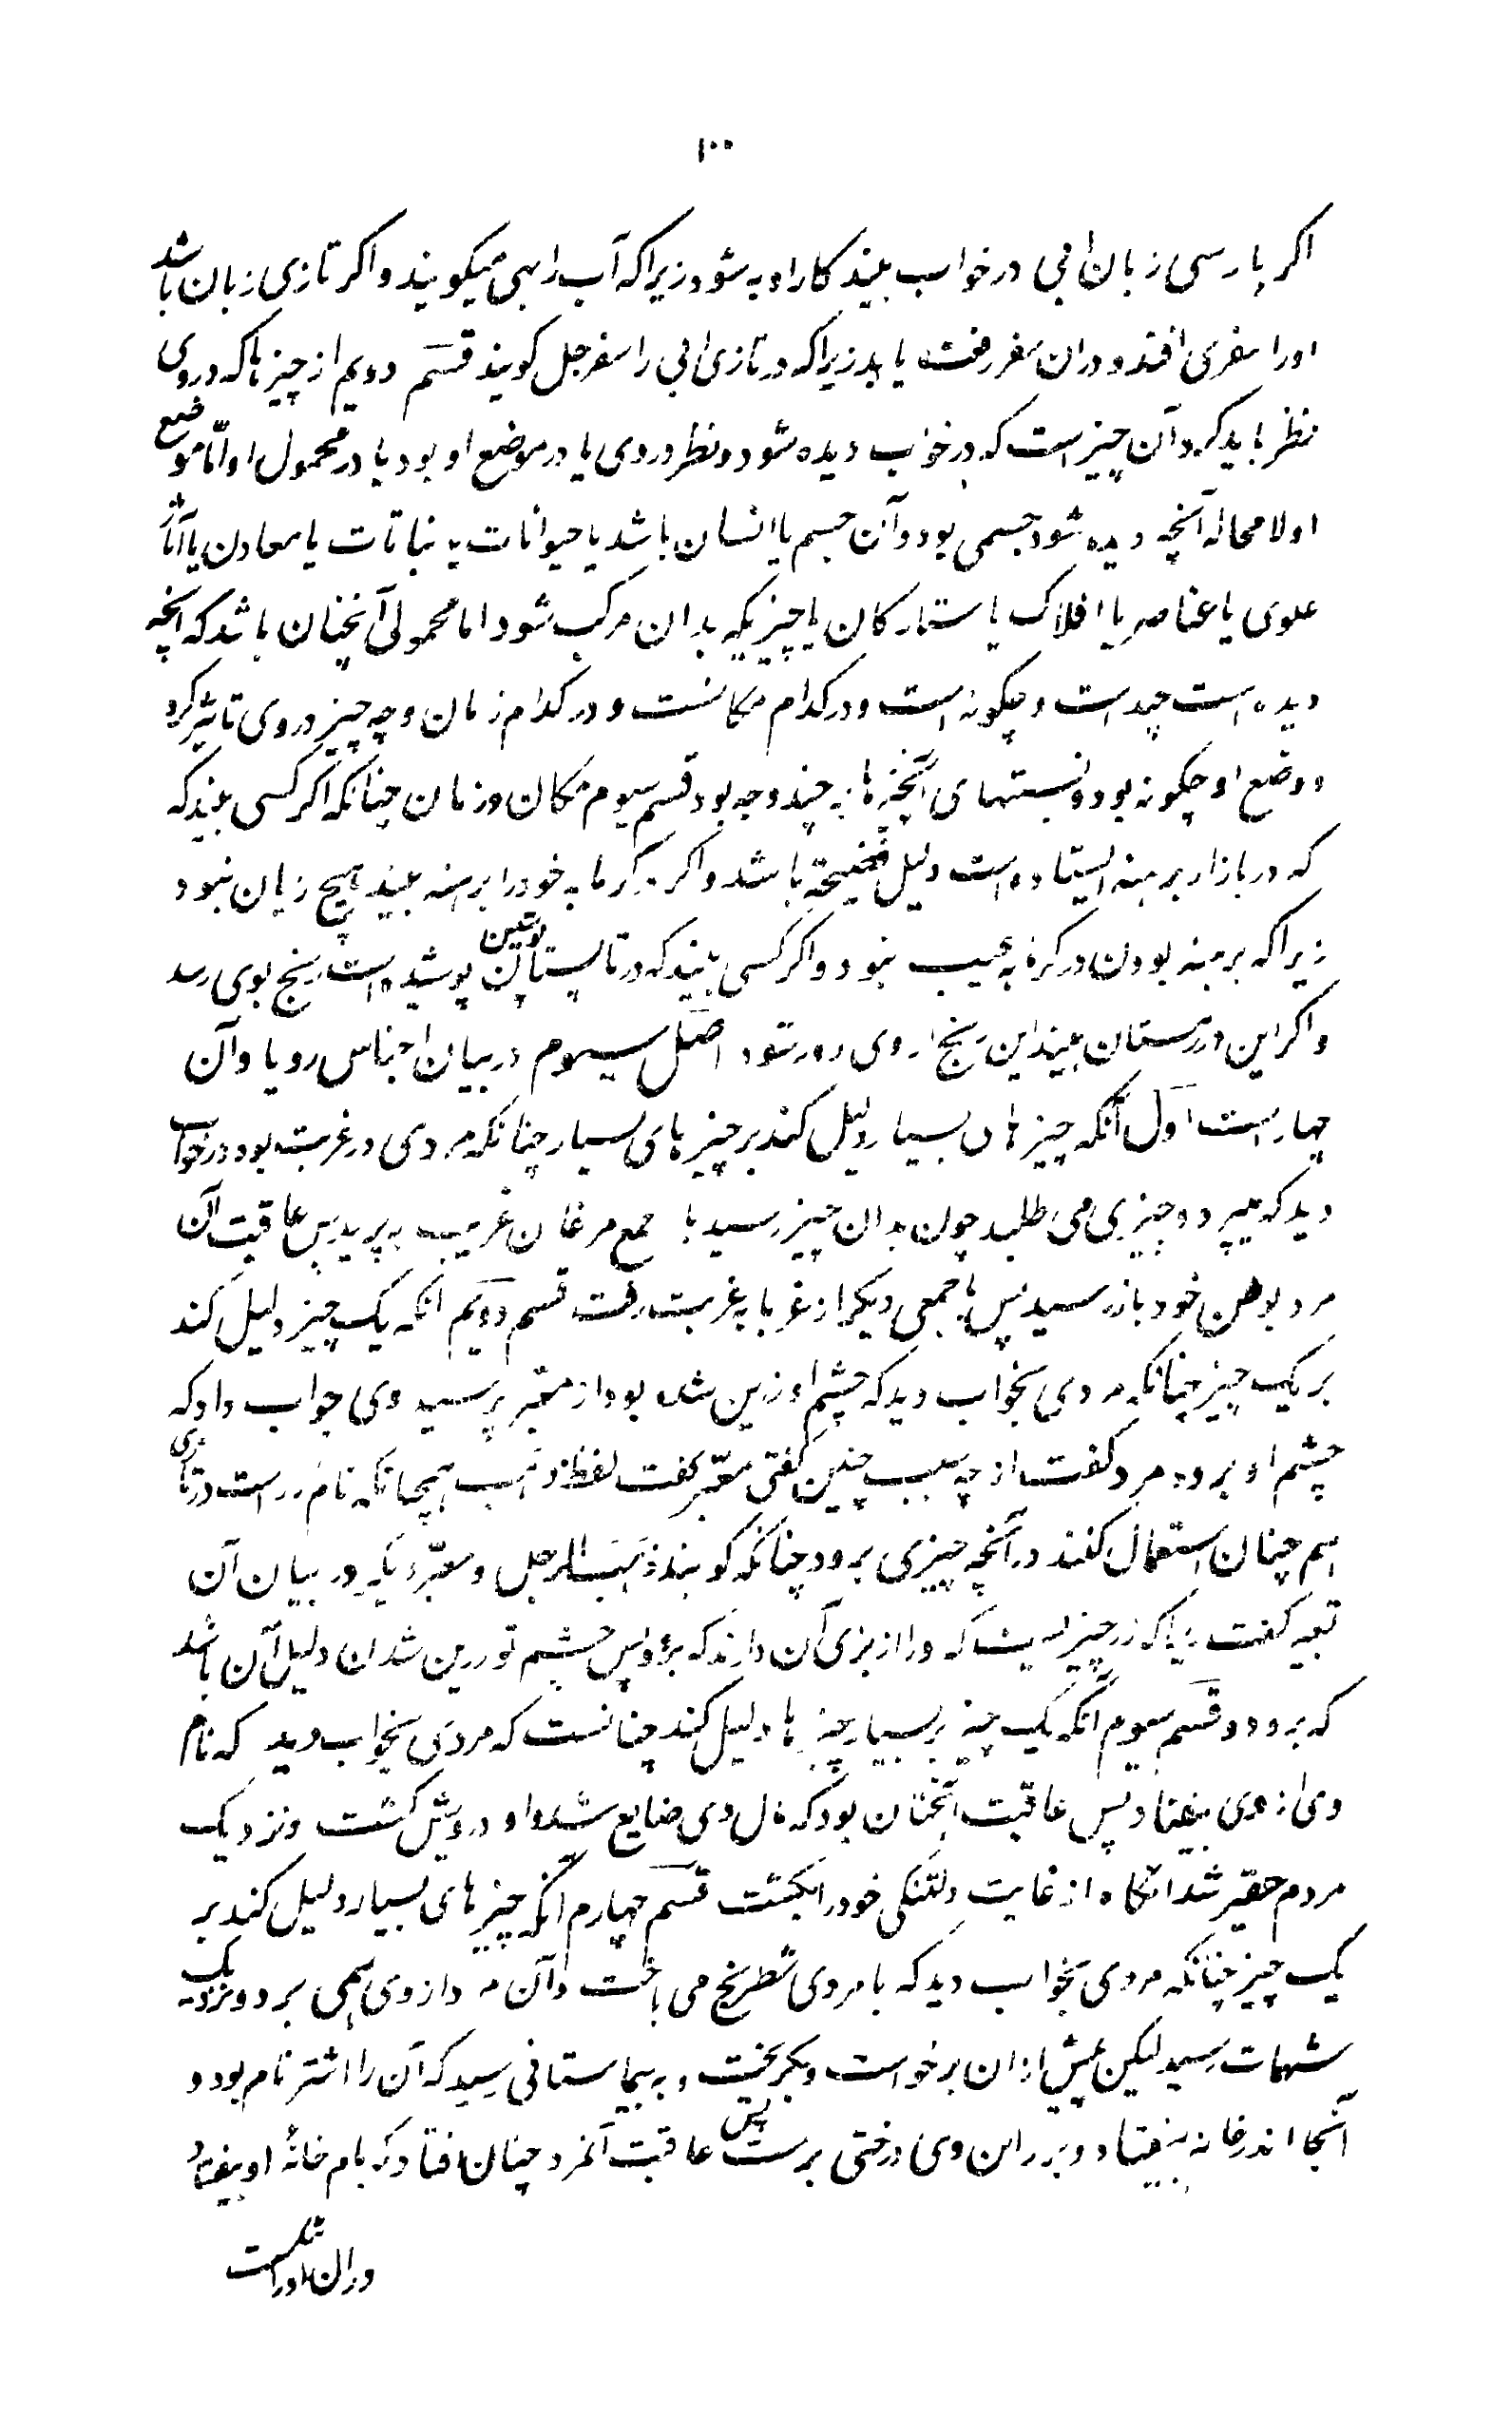 ۱۰۰
اکر پارسی زبان ابی در خواب بیند کار او به شود زیرا که آب را بهی میکویند و اکر تازی زبان باشد
اورا سفری افتد و دران سفر رفته یابد زیرا که در تازی ابی را سفرجل کویند قسم دویم از چیزها که در وی
نظر باید کرد آن چیز است که در خواب دیده شود و نظر در وی یا در موضع او بود یا در محمول او امّا موضع
او لا محاله آنچه دیده شود جسمی بود و آن جسم یا انسان باشد یا حیوانات یا نباتات یا معادن یا آثار
علوی یا عناصر یا افلاک یا ستارکان یا چیزیکه بدان مرکب شود اما محمولی آنچنان باشد که آنچه
دیده است چند است و چکونه است و در کدام مکانست و در کدام زمان و چه چیز در وی تاثیر کرد
و وضع او چکونه بود و نسبتهای آنچیزها به چند وجه بود قسم سیوم مکان و زمان چنانکه اکر کسی بیند که
که در بازار برهنه ایستاده است دلیل فضیحت باشد و اکر در کرمابه خود را برهنه بیند هیچ زیان نبود
زیرا که برهنه بودن در کرمابه عیب نبود و اکر کسی بیند که در تابستان پوستین پوشیده است رنج بوی رسد
و اکر این در زمستان بیند این رنج از وی دور شود اصل سیوم در بیان اجناس رویا و آن
چهار است اول آنکه چیزهای بسیار دلیل کند بر چیزهای بسیار چنانکه مردی در غربت بود در خواب
دید که میپرد و چیزی می طلبد چون بدان چیز رسید با جمع مرغان غریب به پرید پس عاقبت آن
مرد بوطن خود باز رسید پس با جمعی دیکر از غربا به غربت رفت قسم دویم انکه یک چیز دلیل کند
بر یک چیز چنانکه مردی بخواب دید که چشم او زرین شده بود از معبّر پرسید وی جواب داد که
چشم او برود مرد کفت از چه سبب چنین کفتی معبّر کفت لفظ ذهب همچنانکه نام زر است در تازی
اسم چنان استعمال کنند در آنچه چیزی برود چنانکه کویند ذهب الرجل و معبّر دیکر در بیان آن
تعبیه کفت زیرا که زر چیزیست که ورا از بزی آن دارند که برود پس چشم تو زرین شدن دلیل آن باشد
که برود و قسم سیوم آنکه یک چیز بر بسیار چیزها دلیل کند چنانست که مردی بخواب دید که نام
وی از وی بیفتاد پس عاقبت آنچنان بود که مال وی ضایع شد و او درویش کشت و نزدیک
مردم حقیر شد انکاه از غایت دلتنکی خود را بکشت قسم چهارم انکه چیزهای بسیار دلیل کند بر
یک چیز چنانکه مردی بخواب دید که با مردی شطرنج می باخت و آن مرد از وی همی برد و نزدیک
شهمات رسید لیکن پیش ازان برخواست و بکریخت و به بیمارستانی رسید که آن را اشتر نام بود و
آنجا اندر خانه بیفتاد و بر ران وی درختی برست پس عاقبت آنمرد چنان افتاد که بام خانهٔ او بیفتاد
و ران او را شکست